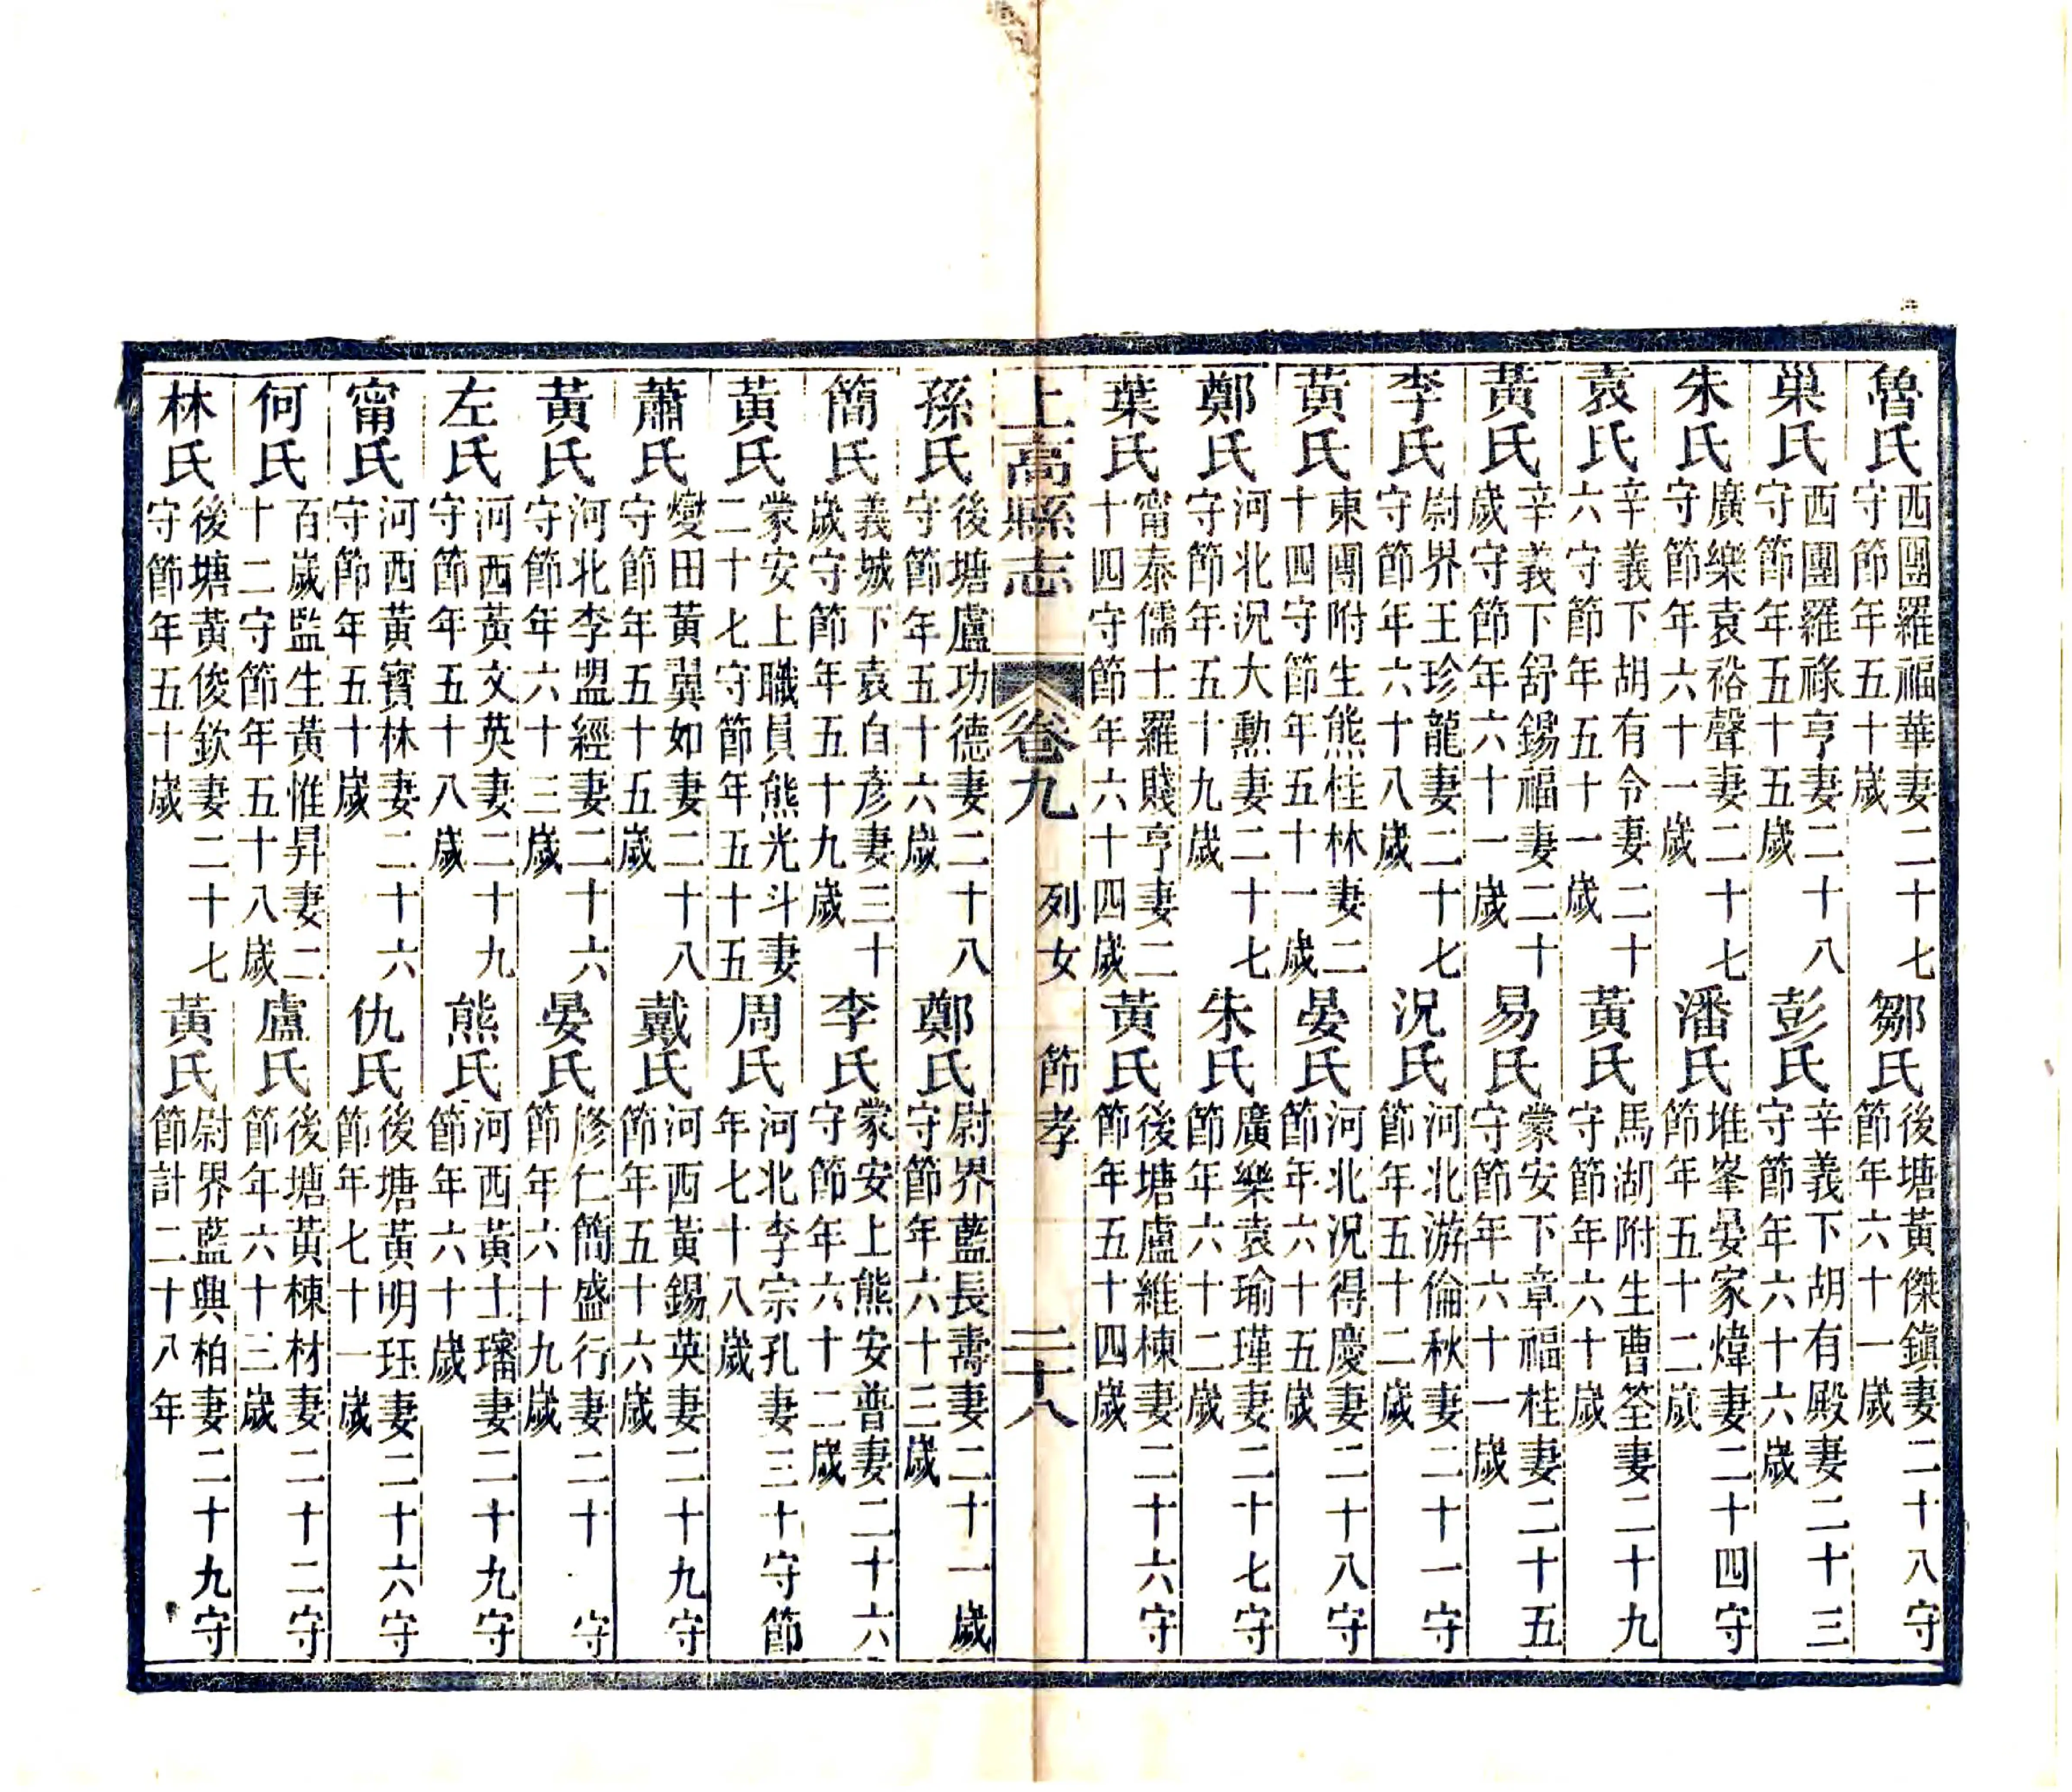 魯氏西團羅福華妻二十七守節年五十歲　鄒氏後塘黃傑鎮妻二十八守節年六十一歲
巢氏西團羅祿亨妻二十八守節年五十五歲　彭氏辛義下胡有殿妻二十三守節年六十六歲
朱氏廣樂袁裕聲妻二十七守節年六十一歲　潘氏堆峯晏家煒妻二十四守節年五十二歲
袁氏辛義下胡有令妻二十六守節年五十一歲　黃氏馬湖附生曹筌妻二十九守節年六十歲
黃氏辛義下舒錫福妻二十歲守節年六十一歲　易氏蒙安下章福桂妻二十五守節年六十一歲
李氏尉界王珍龍妻二十七守節年六十八歲　況氏河北游倫秋妻二十一守節年五十二歲
黃氏東團附生熊桂林妻二十四守節年五十一歲　晏氏河北況得慶妻二十八守節年六十五歲
鄭氏河北況大勳妻二十七守節年五十九歲　朱氏廣樂袁瑜瑾妻二十七守節年六十二歲
葉氏甯泰儒士羅賤亨妻二十四守節年六十四歲　黃氏後塘盧維棟妻二十六守節年五十四歲
上高縣志　卷九　列女　節孝　二十八
孫氏後塘盧功德妻二十八守節年五十六歲　鄭氏尉界藍長壽妻二十一歲守節年六十三歲
簡氏義城下袁自彥妻三十歲守節年五十九歲　李氏蒙安上熊安普妻二十六守節年六十二歲
黃氏蒙安上職員熊光斗妻二十七守節年五十五　周氏河北李宗孔妻三十守節年七十八歲
蕭氏燮田黃巽如妻二十八守節年五十五歲　戴氏河西黃錫英妻二十九守節年五十六歲
黃氏河北李盟經妻二十六守節年六十三歲　晏氏修仁簡盛行妻二十守節年六十九歲
左氏河西黃文英妻二十九守節年五十八歲　熊氏河西黃士璠妻二十九守節年六十歲
甯氏河西黃寶林妻二十六守節年五十歲　仇氏後塘黃明珏妻二十六守節年七十一歲
何氏百歲監生黃惟昇妻二十二守節年五十八歲　盧氏後塘黃棟材妻二十二守節年六十三歲
林氏後塘黃俊欽妻二十七守節年五十歲　黃氏尉界藍興柏妻二十九守節計二十八年